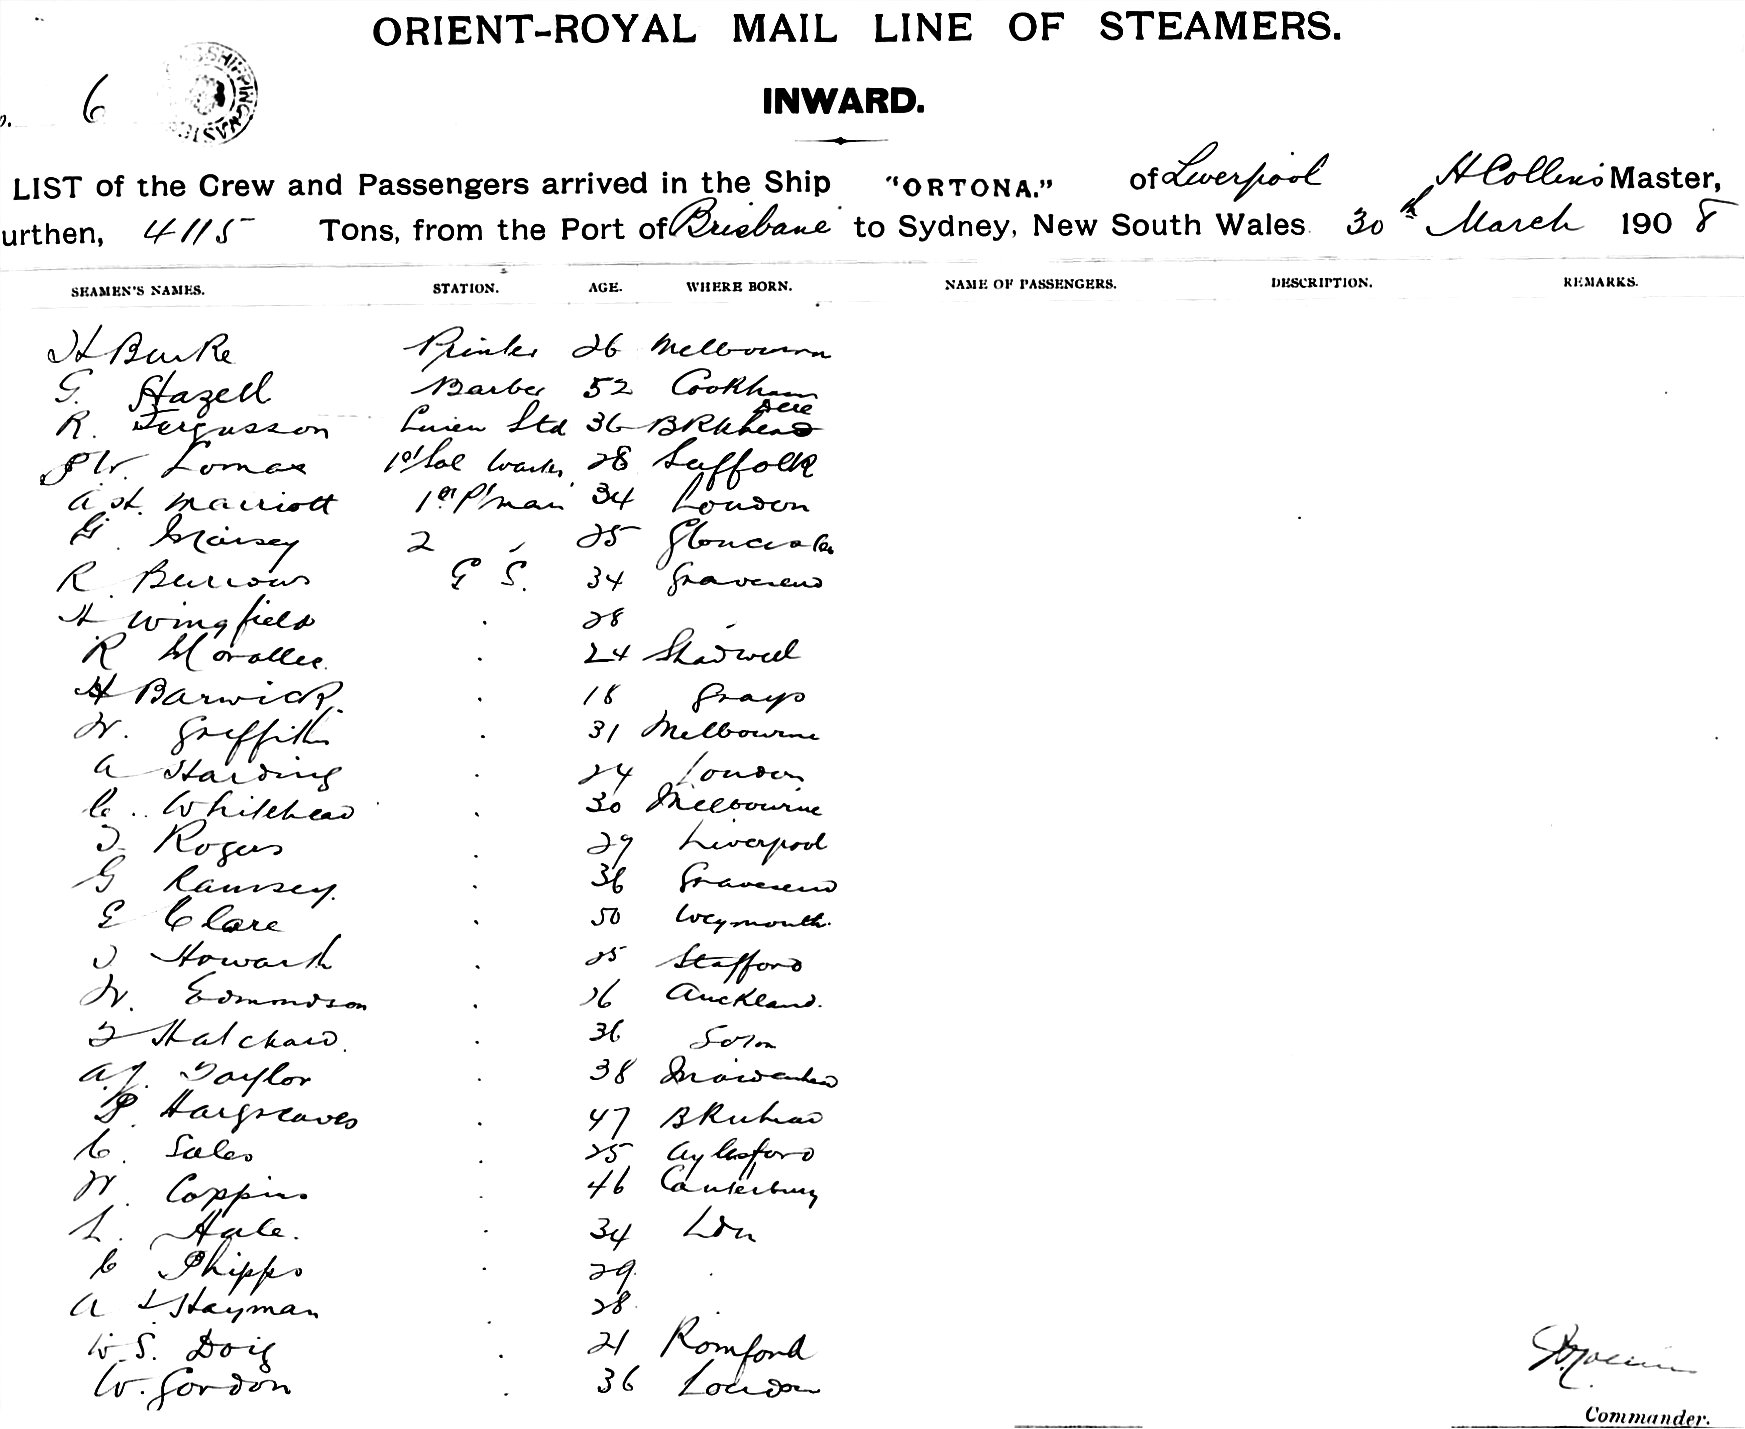 ORIENT-ROYAL MAIL LINE OF STEAMERS.
6
INWARD.
LIST of the Crew and Passengers arrived in the Ship "ORTONA." of Liverpool H Collins Master,
urthen, 4115 Tons, from the Port of Brisbane to Sydney, New South Wales 30th March 1908
SEAMEN'S NAMES. STATION. AGE. WHERE BORN. NAME OF PASSENGERS. DESCRIPTION. REMARKS.
H Burke Printer 26 Melbourne
G. Hazell Barber 52 Cookham
Dere
R. Fergusson Linen Std 36 BKhead
Lomax 28 Suffolk
A H. Marriott 1st P'man 34 London
G. Maisey 2 " 25 Gloucester
R Burrows G S. 34 Gravesend
H Wingfield . 28 "
R Morallee . 24 Shadwell
H Barwick . 18 Grays
W. Griffiths . 31 Melbourne
A Harding . 24 London
C. Whitehead . 30 Melbourne
T. Rogers . 29 Liverpool
G Ramsey. . 36 Gravesend
E Clare . 50 Weymouth.
J Howarth . 25 Stafford
W. Edmondson . 26 Auckland.
T Hatchard. . 36 Soton
A.J. Taylor . 38 Maidenhead
P. Hargreaves . 47 BKnhead
C. Sales . 25 Aylesford
W. Coppins . 46 Canterbury
L. Hale. . 34 Lon
C Phipps . 29 .
A Hayman . 28 .
W.S. Doig . 21 Romford
W. Gordon . 36 London
Commander.